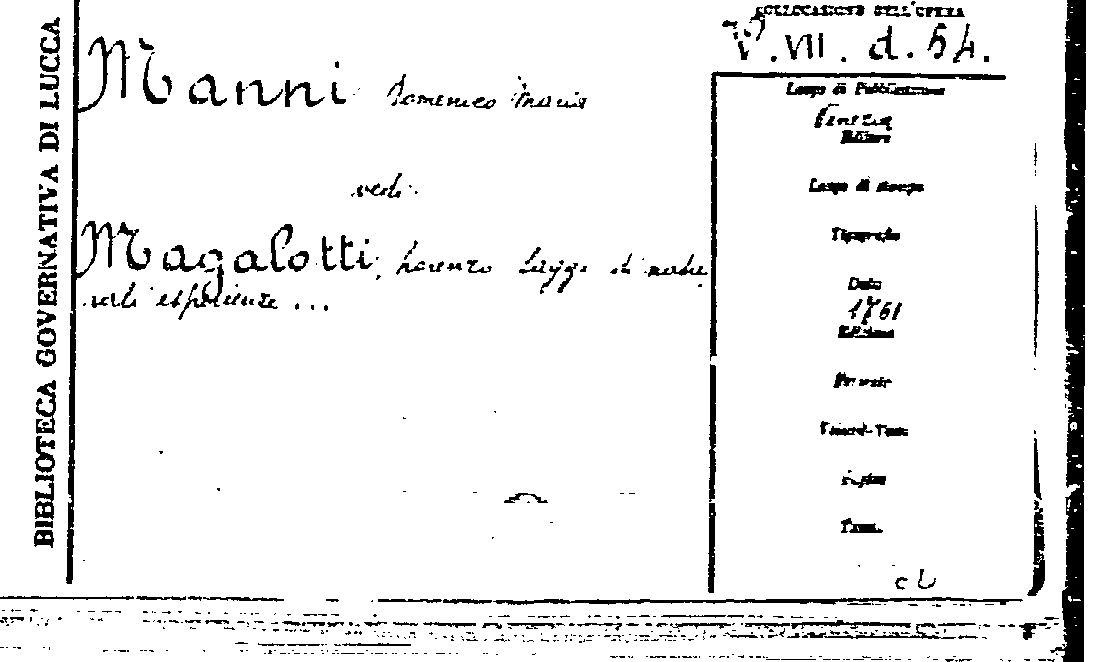 BIBLIOTECA GOVERNATIVA DI LUCCA
COLLOCAZIONE DELL'OPERA
V. VII. d. 54.
Manni Domenico Maria
vedi
Magalotti, Lorenzo Saggi di natu
rali esperienze ...
Luogo di Pubblicazione
Venezia
Editore
Luogo di stampa
Tipografo
Data
1761
Edizione
Formato
Pagine